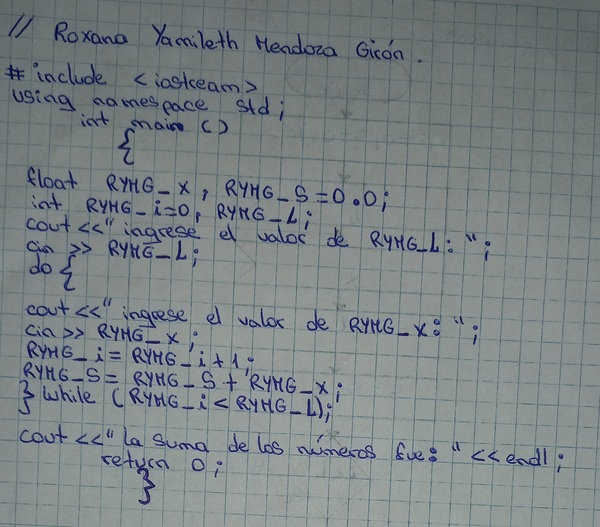 // Roxana Yamileth Mendoza Girón.
# include <iostream>
using namespace std;
int main ()
{
float RYMG_x, RYMG_S=0.0;
int RYMG_i=0, RYMG_L;
cout <<" ingrese el valor de RYMG_L: ";
cin >> RYMG_L;
do {
cout <<" ingrese el valor de RYMG_x: ";
cin >> RYMG_x;
RYMG_i = RYMG_i+1;
RYMG_S= RYMG_S + RYMG_x;
} while (RYMG_i < RYMG_L);
cout <<" la suma de los números fue: " << endl;
return 0;
}